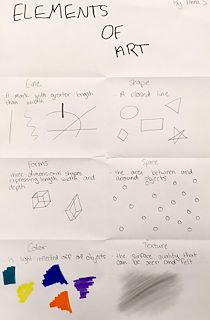 By Anna S
ELEMENTS
OF
ART
Line
A mark with greater length
than width
Shape
- A closed line
Forms
three dimensional shapes
expressing length, width, and
depth
Space
- the area between and
around objects
Color
light reflected off of objects
Texture
- the surface quality that
can be seen and felt